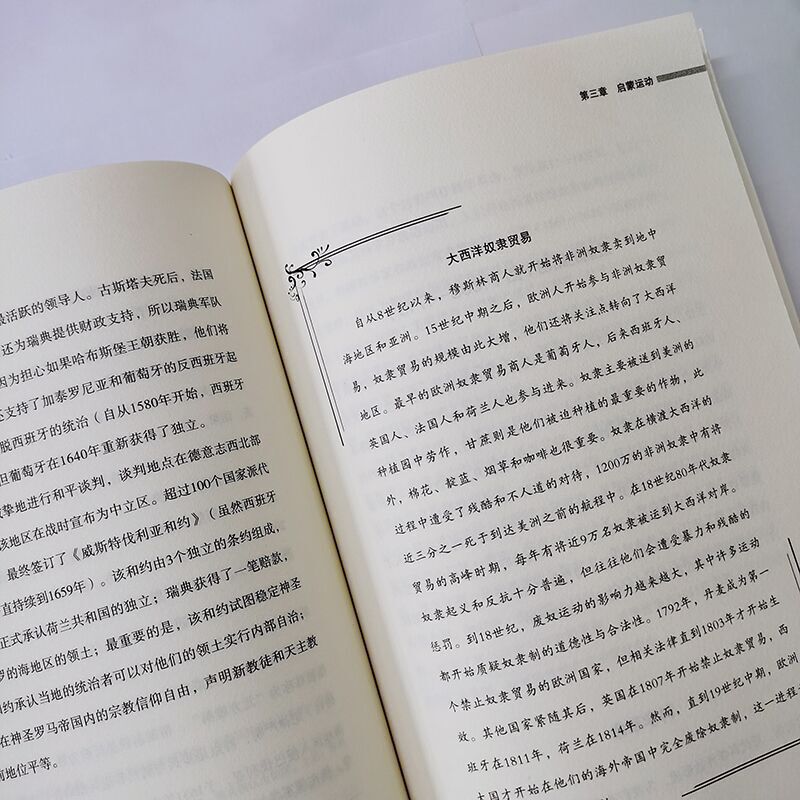 最活跃的领导人。古斯塔夫死后，法国
还为瑞典提供财政支持，所以瑞典军队
因为担心如果哈布斯堡王朝获胜，他们将
还支持了加泰罗尼亚和葡萄牙的反西班牙起
脱西班牙的统治（自从1580年开始，西班牙
但葡萄牙在1640年重新获得了独立。
敌挚地进行和平谈判，谈判地点在德意志西北部
该地区在战时宣布为中立区。超过100个国家派代
最终签订了《威斯特伐利亚和约》（虽然西班牙
直持续到1659年）。该和约由3个独立的条约组成，
正式承认荷兰共和国的独立；瑞典获得了一笔赔款，
罗的海地区的领土；最重要的是，该和约试图稳定神圣
约承认当地的统治者可以对他们的领土实行内部自治；
在神圣罗马帝国内的宗教信仰自由，声明新教徒和天主教
地位平等。
第三章 启蒙运动
大西洋奴隶贸易
自从8世纪以来，穆斯林商人就开始将非洲奴隶卖到地中
海地区和亚洲。15世纪中期之后，欧洲人开始参与非洲奴隶贸
易，奴隶贸易的规模由此大增，他们还将关注点转向了大西洋
地区。最早的欧洲奴隶贸易商人是葡萄牙人，后来西班牙人、
英国人、法国人和荷兰人也参与进来。奴隶主要被送到美洲的
种植园中劳作，甘蔗则是他们被迫种植的最重要的作物，此
外，棉花、靛蓝、烟草和咖啡也很重要。奴隶在横渡大西洋的
过程中遭受了残酷和不人道的对待，1200万的非洲奴隶中有将
近三分之一死于到达美洲之前的航程中。在18世纪80年代奴隶
贸易的高峰时期，每年有将近9万名奴隶被运到大西洋对岸。
奴隶起义和反抗十分普遍，但往往他们会遭受暴力和残酷的
惩罚。到18世纪，废奴运动的影响力越来越大，其中许多运动
都开始质疑奴隶制的道德性与合法性。1792年，丹麦成为第一
个禁止奴隶贸易的欧洲国家，但相关法律直到1803年才开始生
效。其他国家紧随其后，英国在1807年开始禁止奴隶贸易，西
班牙在1811年，荷兰在1814年。然而，直到19世纪中期，欧洲
大国才开始在他们的海外帝国中完全废除奴隶制，这一进程